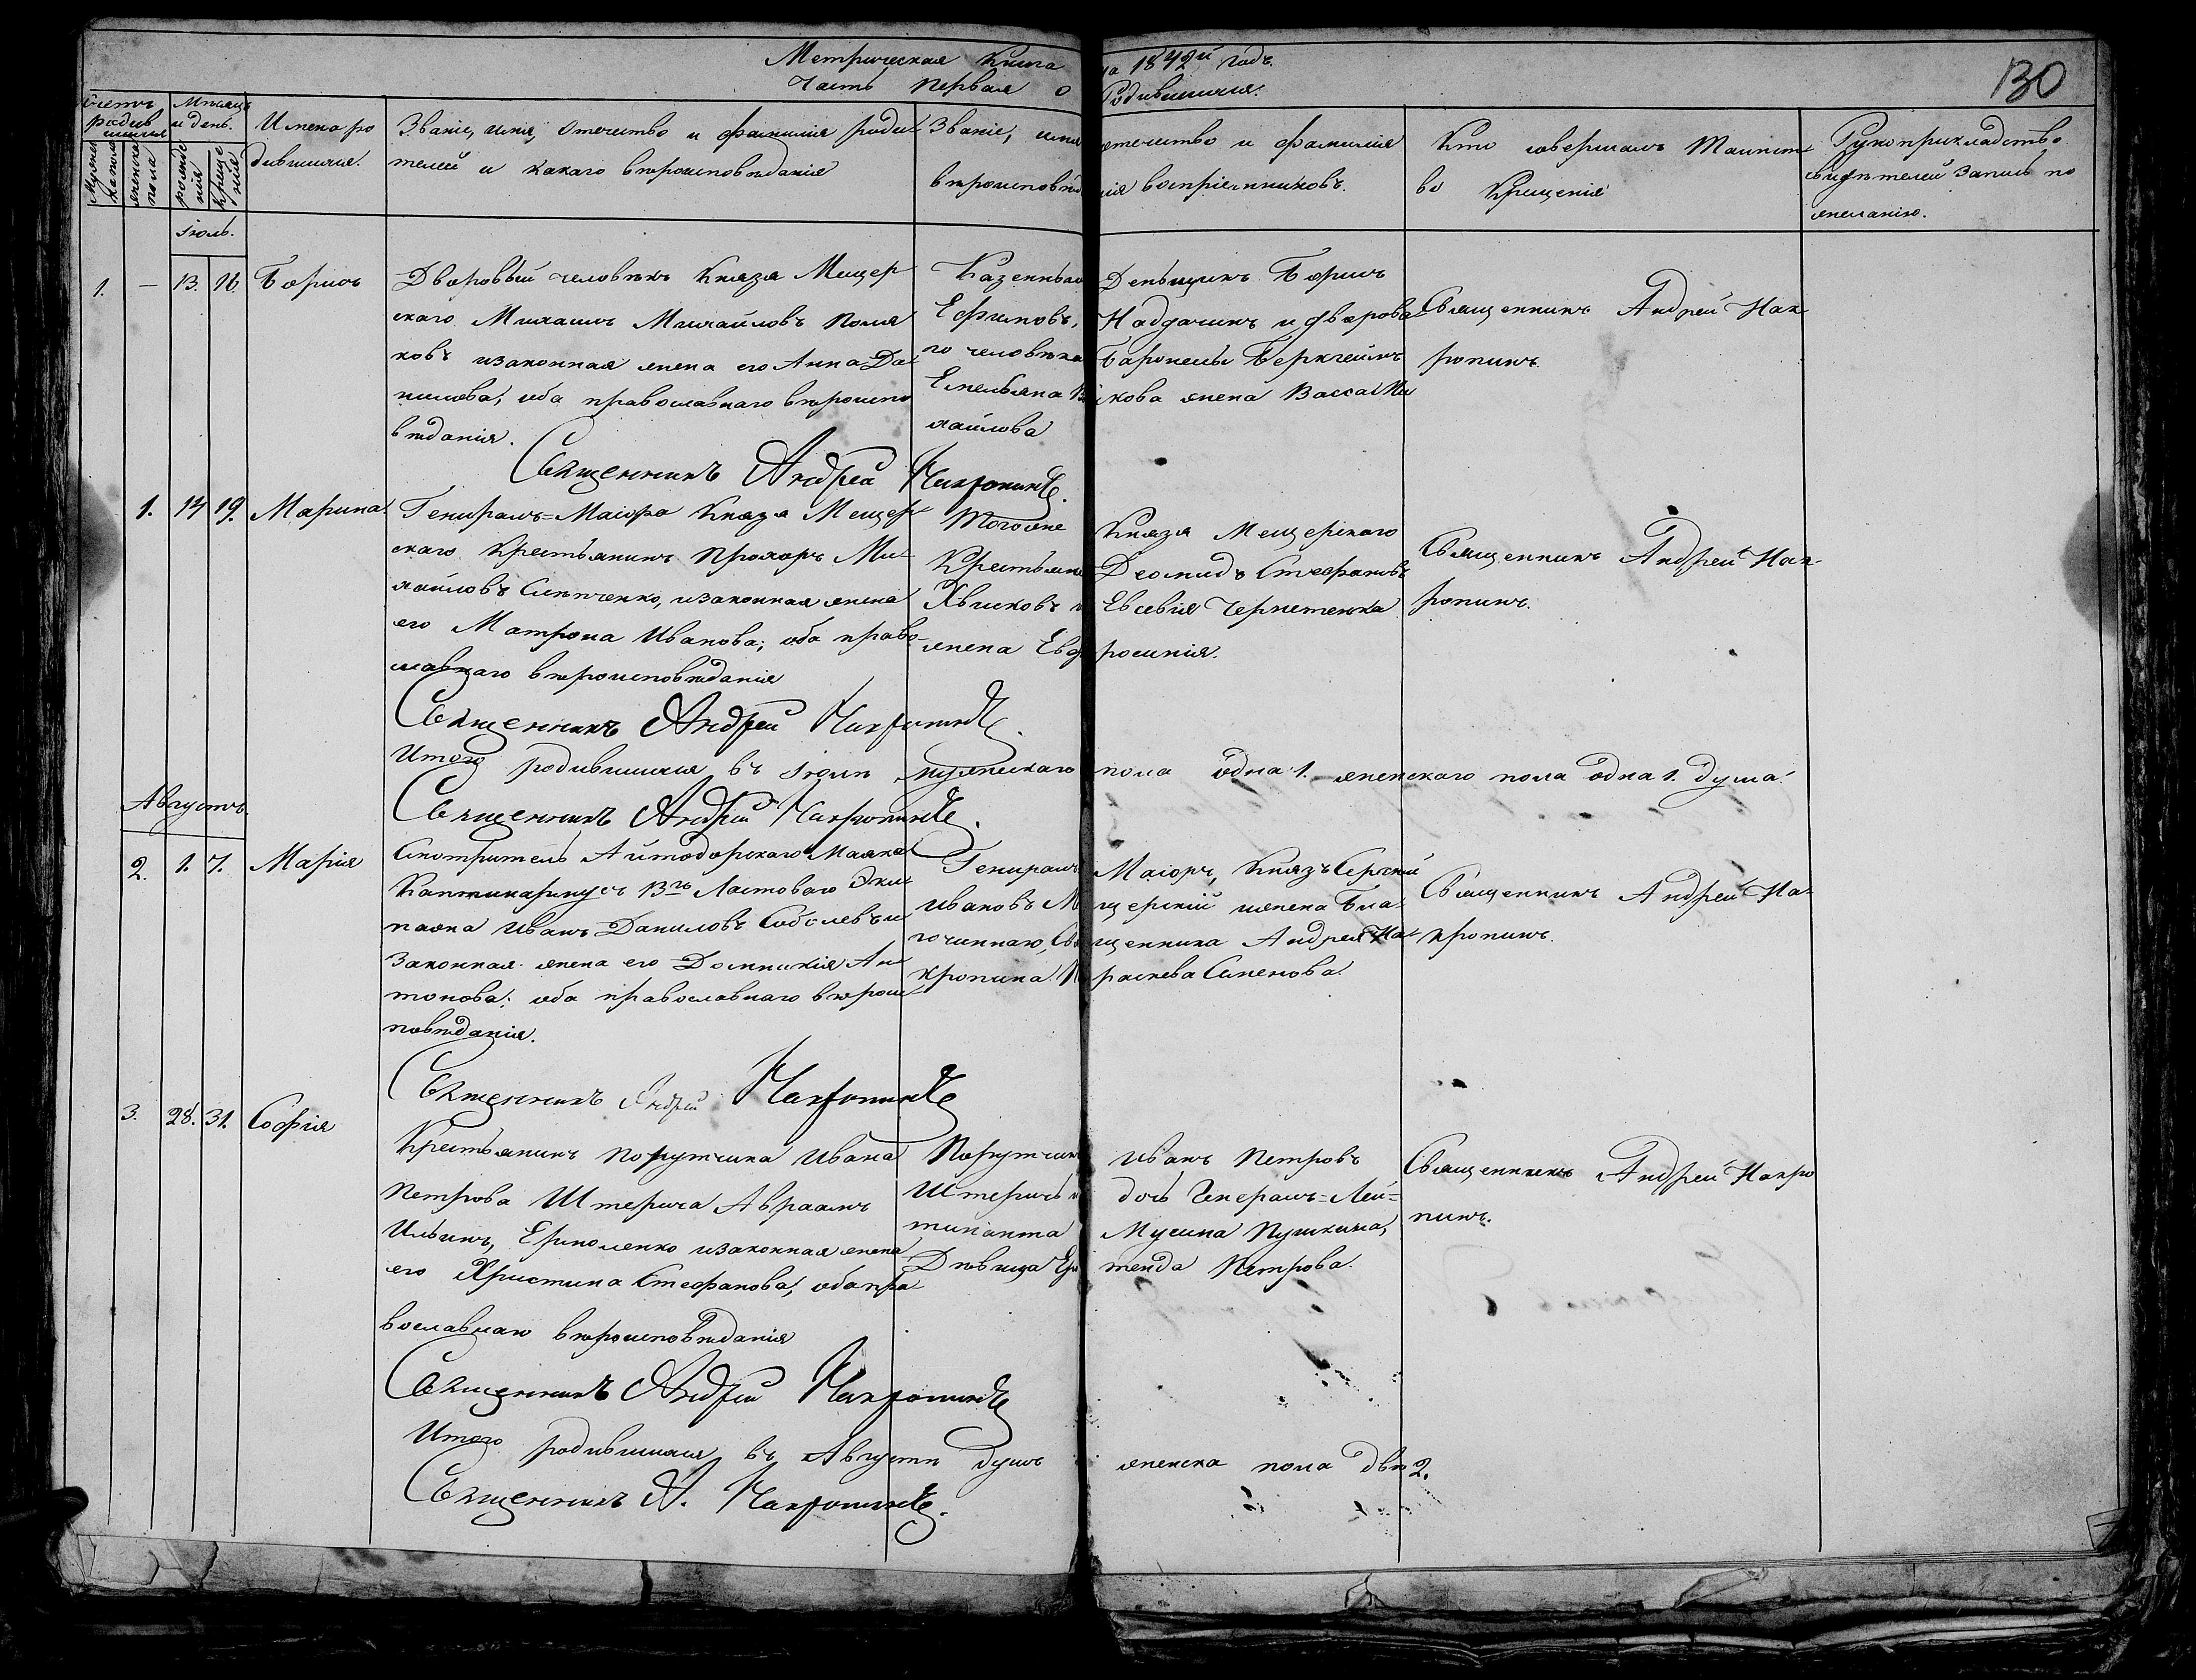 Метрическая Книга на 1842й годъ.
Часть Первая о Родившихся.
130
Счетъ родившихся
Мужеска пола
женска пола
Мѣсяцъ и день.
рожденія
крещенія
Имена ро
дившихся.
Званіе, имя, Отечество и фамилія роди
телей и какаго вѣроисповѣданія
Званіе, имя отечество и фамилія
вѣроисповѣданія воспріемниковъ.
Кто совершалъ Таинст
во Крещенія
Рукоприкладство
свидѣтелей Записи по
желанію.
Іюль.
1. — 13. 16. Борисъ
Дворовый человѣкъ Князя Мещер
скаго Михаилъ Михайловъ Поля
ковъ изаконная жена его Анна Да
нилова, оба православнаго вѣроиспо
вѣданія.
Казенный Деньщикъ Борисъ
Ефимовъ, Наддачинъ и дворова
го человѣка Баронессы Беркгеймъ
Емельяна кова жена Васса Ми
хайлова
Священникъ Андрей Нак
ропинъ.
Священникъ Андрей Накропинъ.
1. 14 19. Марина
Генералъ=Маіора Князя Мещер
скаго Крестьянинъ Прохоръ Ми
хайловъ Слѣпченко, изаконная жена
его Матрона Иванова, оба право
славнаго вѣроисповѣданія
Тогоже Князя Мещерскаго
Крестьяне Деомидъ Стефановъ
Хвиковъ и Евсевія Чернетенка
жена Евфросинія.
Священникъ Андрей Нак
ропинъ.
Священникъ Андрей Накропинъ.
Итого родившихся въ Іюлѣ мужескаго пола одна 1. женскаго пола одна 1. душа.
Священникъ Андрей Накропинъ.
Августъ.
2. 1. 7. Марія
Смотритель Айтодорскаго Маяка
Каптинармусъ 13го Ластоваго Эки
пажа Иванъ Даниловъ Соболевъ и
Законная жена его Домникія Ан
тонова, оба православнаго вѣроис
повѣданія.
Генералъ Маіоръ, Князь Сергѣй
Ивановъ Мещерскій и жена Бла
гочиннаго, Священника Андрея На
кропина Параскева Семенова.
Священникъ Андрей На
кропинъ.
Священникъ Андрей Накропинъ
3. 28. 31. Софія
Крестьянинъ Порутчика Ивана
Петрова Штерича Авраамъ
Ильинъ, Ермоленко изаконная жена
его Христина Стефанова, оба пра
вославнаго вѣроисповѣданія
Порутчикъ Иванъ Петровъ
Штеричъ и дочь Генералъ=Лей=
тинанта Мусина Пушкина,
Дѣвица Петрова.
Священникъ Андрей Накро
пинъ.
Священникъ Андрей Накропинъ
Итого родившихся въ Августѣ душъ женска пола двѣ 2.
Священникъ А. Накропинъ.